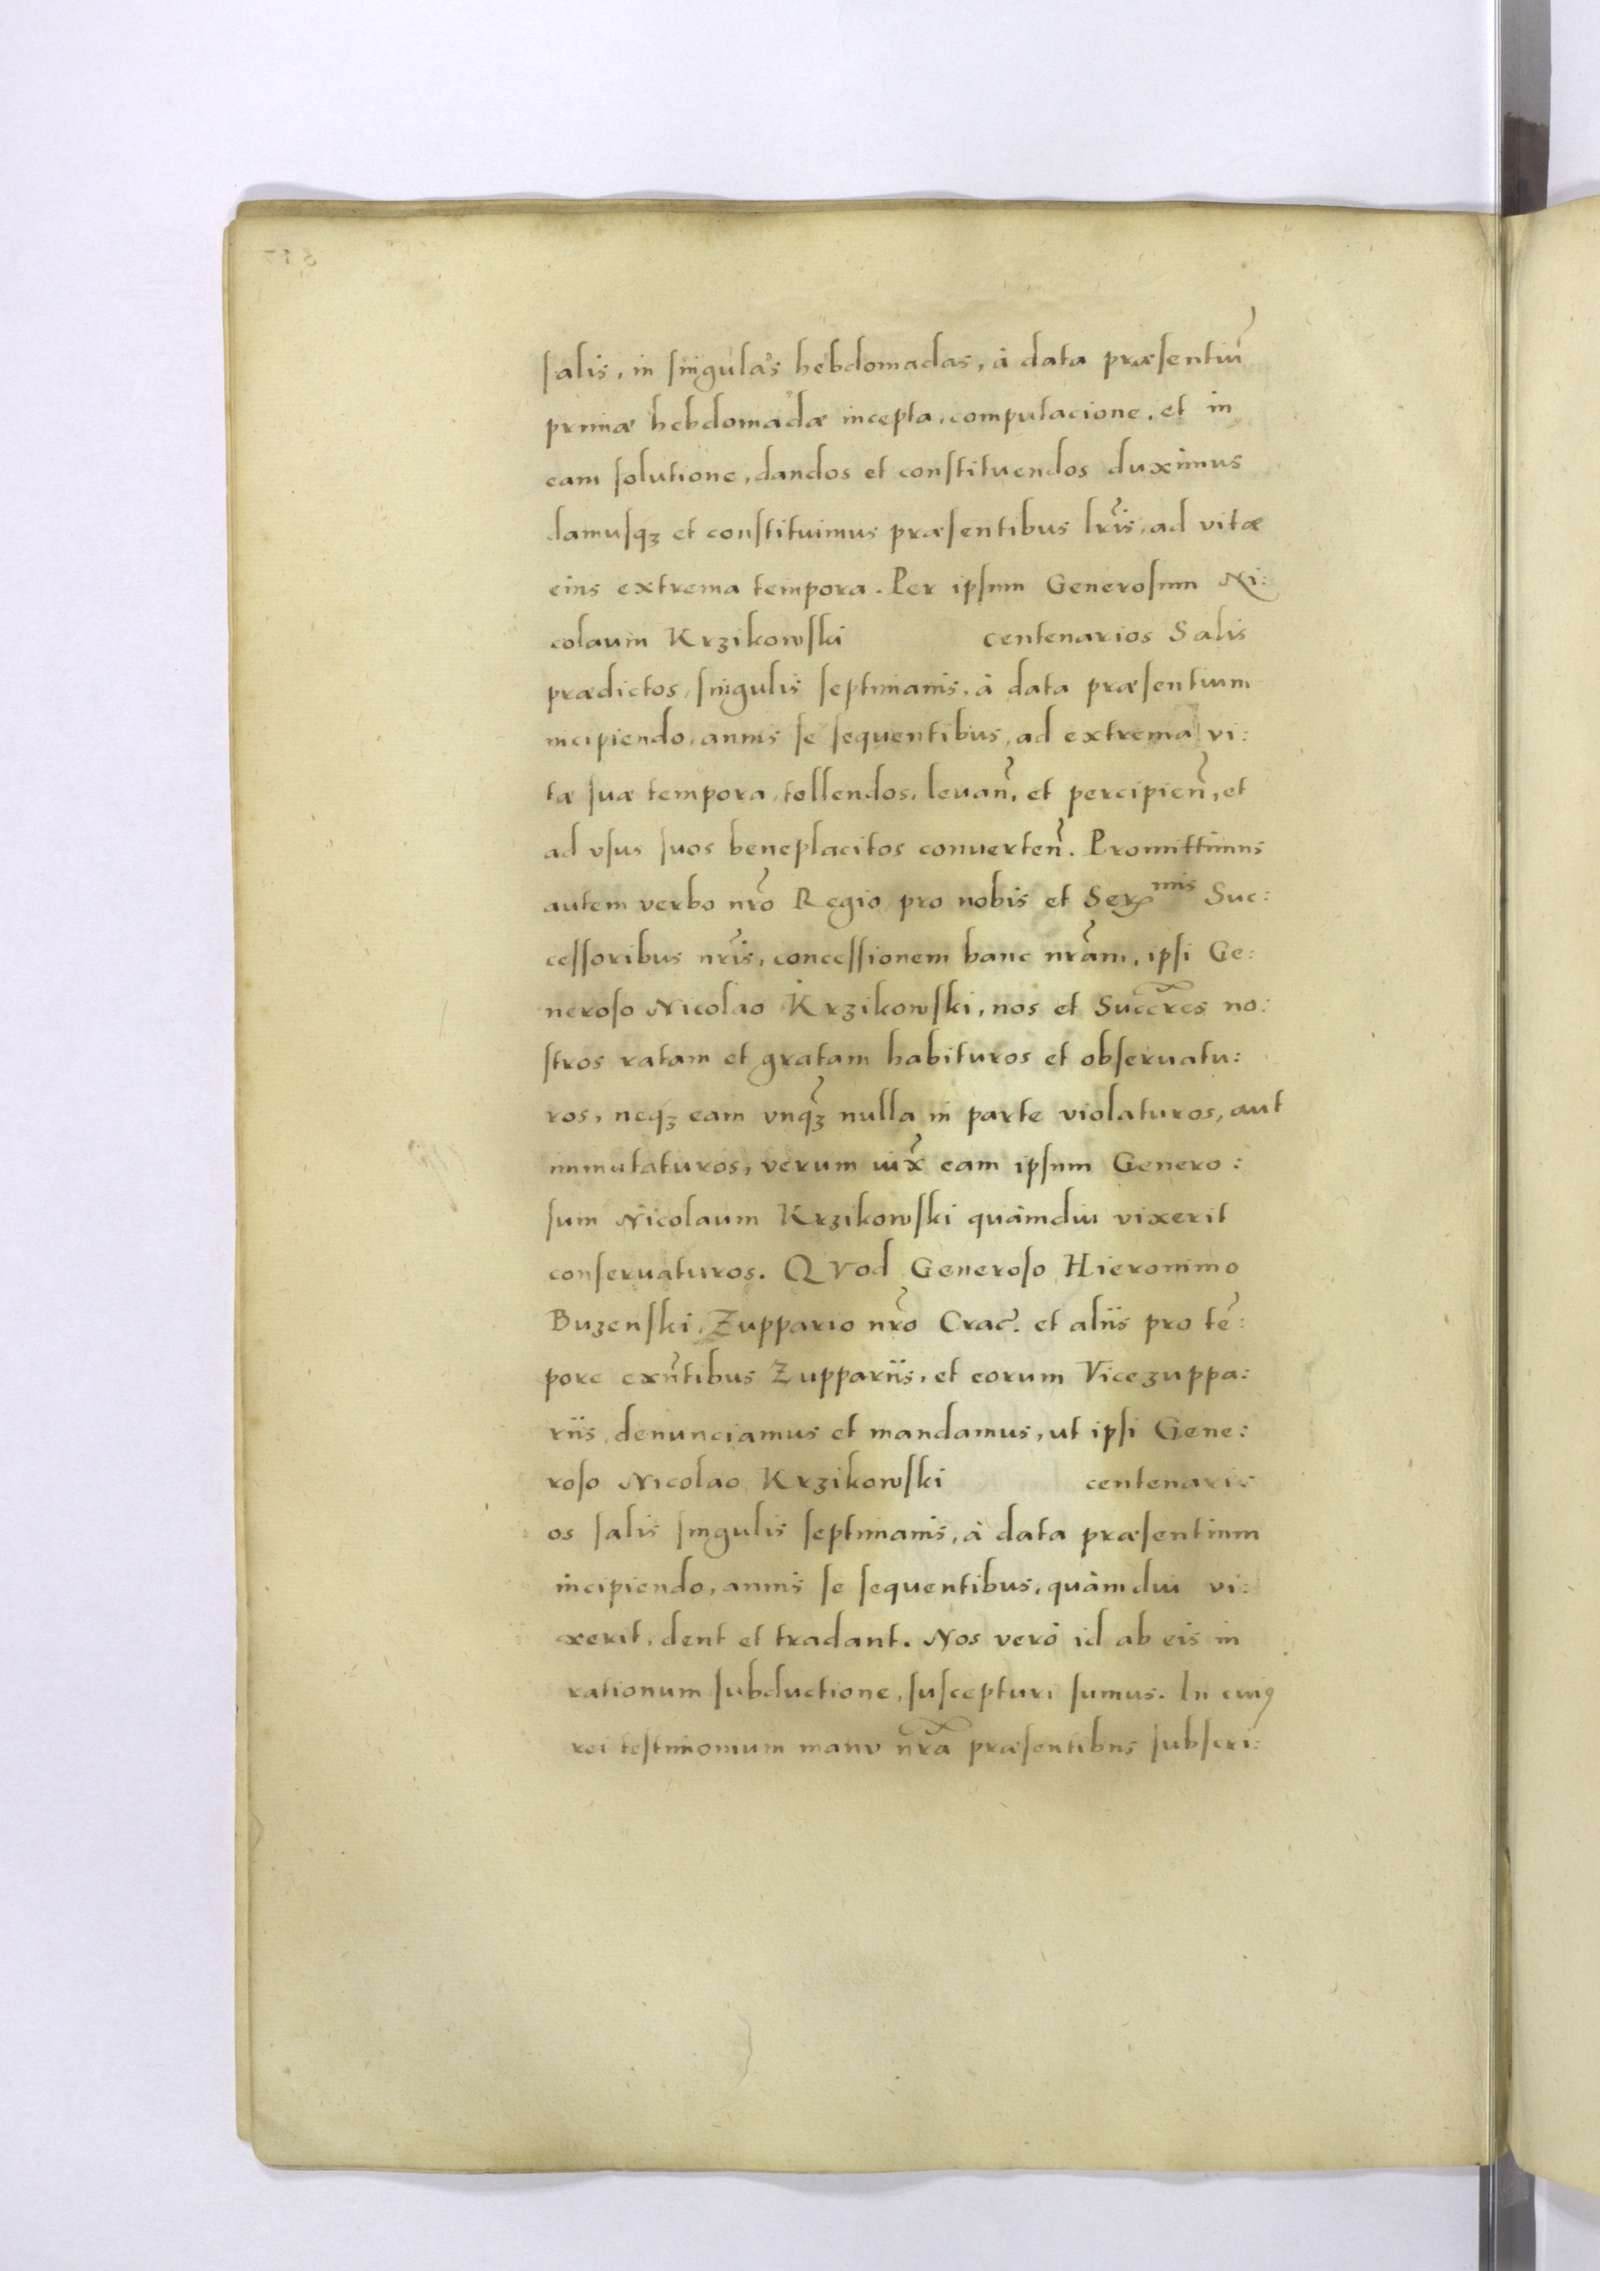 salis, in singulas hebdomadas, à data præsentiū
primæ hebdomadæ incepta, computacione, et in
eam solutione, dandos et constituendos duximus
damusqȝ et constituimus præsentibus lr̃is, ad vitæ
eius extrema tempora. Per ipsum Generosum Ni:
colaum Krzikowski centenarios Salis
prædictos, singulis septimanis, à data præsentium
incipiendo, annis se sequentibus, ad extrema vi:
tæ suæ tempora, tollendos, leuañ, et percipieñ, et
ad vsus suos beneplacitos conuerteñ. Promittimus
autem verbo nr̃o Regio pro nobis et Ser^mis Suc:
cessoribus nr̃is, concessionem hanc nr̃am, ipsi Ge:
neroso Nicolao Krzikowski, nos et Succr̃es no:
stros ratam et gratam habituros et obseruatu:
ros, neqȝ eam vnqȝ̃ nulla in parte violaturos, aut
immutaturos, verum iux̃ eam ipsum Genero:
sum Nicolaum Krzikowski quàmdiu vixerit
conseruaturos. QVod Generoso Hieronimo
Buzenski, Zuppario nr̃o Crac̃. et aliis pro tẽ:
pore exñtibus Zuppariis, et eorum Vicezuppa:
riis, denunciamus et mandamus, ut ipsi Gene:
roso Nicolao Krzikowski centenari:
os salis singulis septimanis, à data præsentium
incipiendo, annis se sequentibus, quàmdiu vi:
xerit, dent et tradant. Nos verò id ab eis in
rationum subductione, suscepturi sumus. In cuiꝰ
rei testimonium manu nr̃a præsentibus subscri: